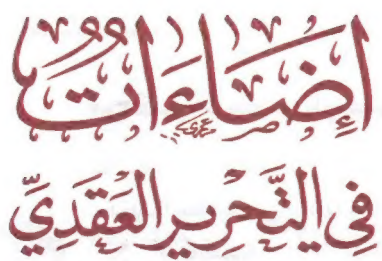 إِضَاءَاتٌ
فِي التَّحْرِيرِ العَقَدِيِّ